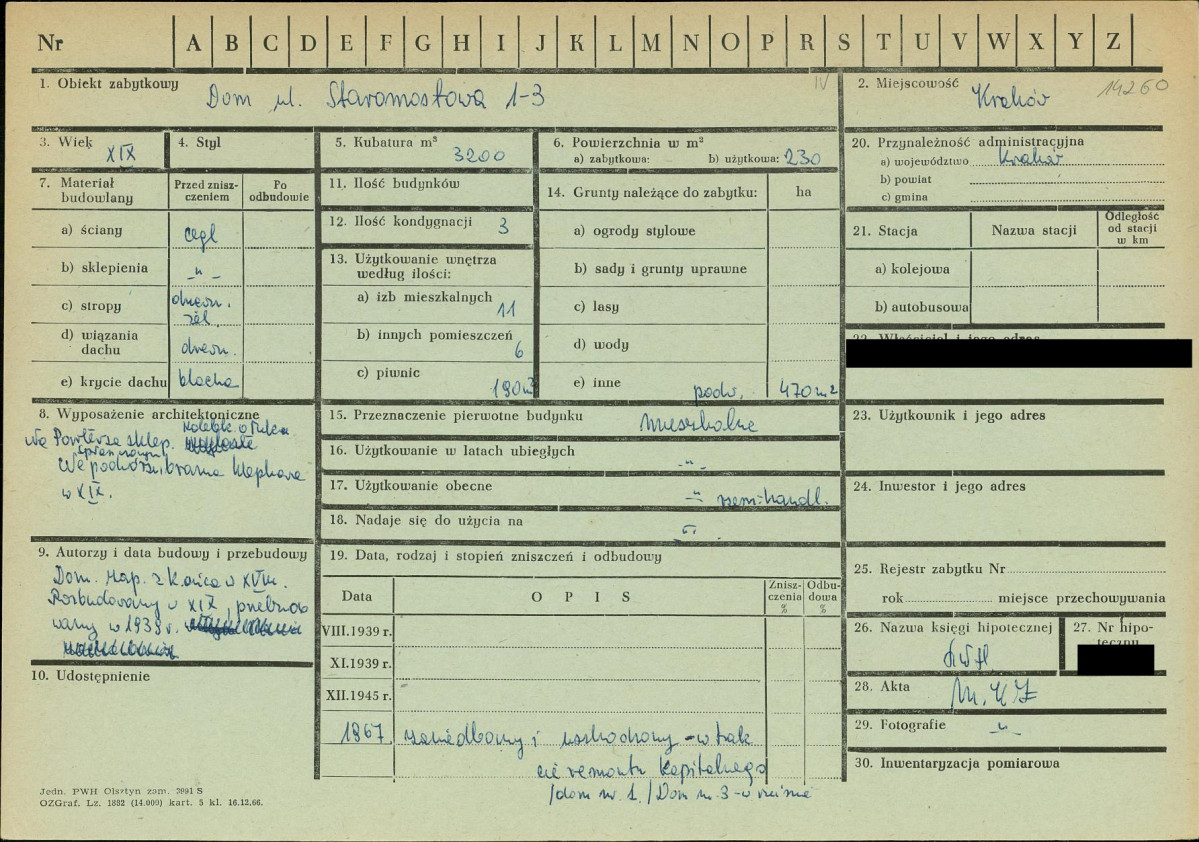 Nr A B C D E F G H I J K L M N O P R S T U V W X Y Z
1. Obiekt zabytkowy Dom ul. Staromostowa 1-3
IV
2. Miejscowość Kraków
14260
3. Wiek XIX
4. Styl
5. Kubatura m³ 3200
6. Powierzchnia w m²
a) zabytkowa: b) użytkowa: 230
20. Przynależność administracyjna
a) województwo Kraków
b) powiat
c) gmina
7. Materiał budowlany
Przed znisz-
czeniem
Po
odbudowie
a) ściany cegł
b) sklepienia -"-
c) stropy drewn.
żel.
d) wiązania
dachu drewn.
e) krycie dachu blacha
11. Ilość budynków
12. Ilość kondygnacji 3
13. Użytkowanie wnętrza
według ilości:
a) izb mieszkalnych 11
b) innych pomieszczeń 6
c) piwnic 190m²
14. Grunty należące do zabytku: ha
a) ogrody stylowe
b) sady i grunty uprawne
c) lasy
d) wody
e) inne podw. 470m2
21. Stacja Nazwa stacji
Odległość
od stacji
w km
a) kolejowa
b) autobusowa
22. Właściciel i jego adres
8. Wyposażenie architektoniczne
sklep.
brama klepkowa
w XIX.
15. Przeznaczenie pierwotne budynku mieszkalne
16. Użytkowanie w latach ubiegłych -"-
17. Użytkowanie obecne -"- rzem-handl.
18. Nadaje się do użycia na -"-
23. Użytkownik i jego adres
24. Inwestor i jego adres
9. Autorzy i data budowy i przebudowy
Dom. z końca w XVIII.
Rozbudowany w XIX, przebudo
wany w 1938 r.
10. Udostępnienie
19. Data, rodzaj i stopień zniszczeń i odbudowy
Data OPIS
Znisz-
czenia
%
Odbu-
dowa
%
VIII.1939 r.
XI.1939 r.
XII.1945 r.
1967. zaniedbany i uszkodzony - w trak
cie remontu kapitalnego
/dom nr 1./Dom nr 3 - w ruinie
25. Rejestr zabytku Nr
rok miejsce przechowywania
26. Nazwa księgi hipotecznej
27. Nr hipo-
teczny
28. Akta M.K.Z
29. Fotografie -"-
30. Inwentaryzacja pomiarowa
Jedn. PWH Olsztyn zam. 3991 S
OZGraf. Lz. 1882 (14.000) kart. 5 kl. 16.12.66.